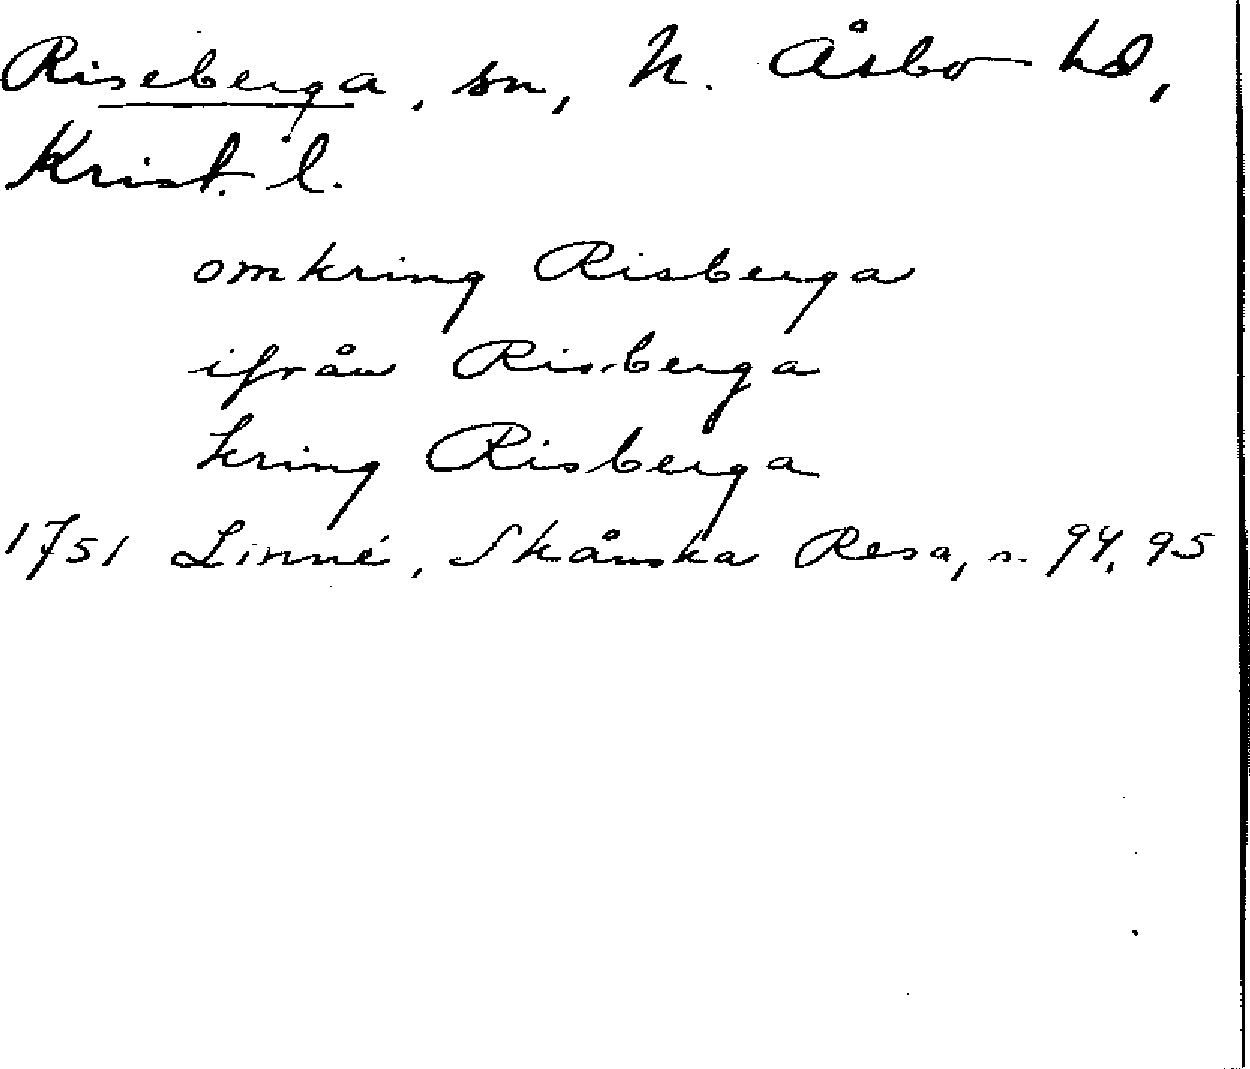 Riseberga, sn, N. Åsbo hd,
Krist. l.
omkring Risberga
ifrån Risberga
kring Risberga
1751 Linné, Skånska Resa, s. 94, 95